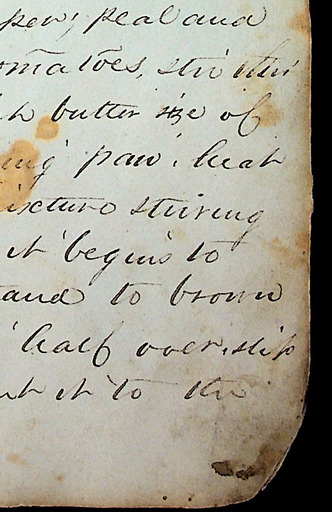 per, peal and
omatoes, stir this
h butter size of
ing pan, heat
ixture stirring
it begins to
and to brown
half over, slip
it to the